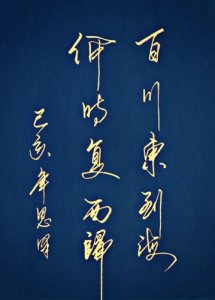 百川東到海
何時复西歸
己亥年思明